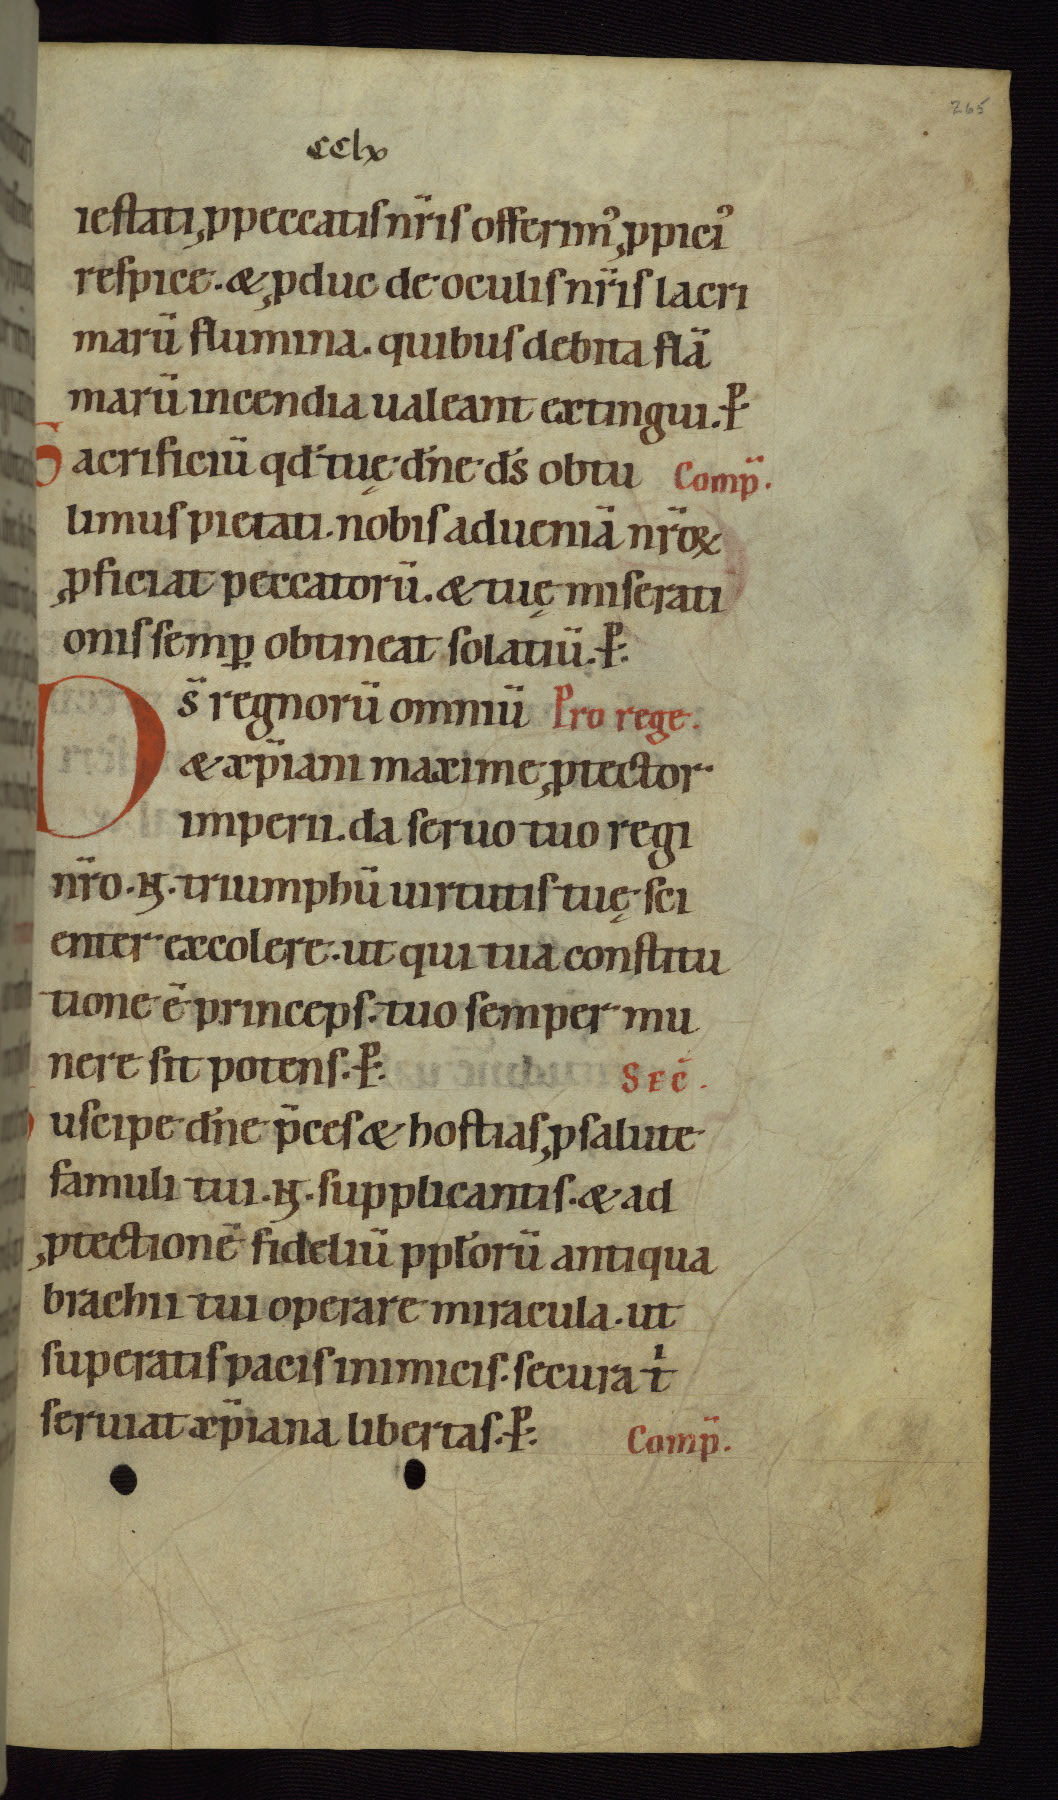 265
CClx
ieſtati, ꝓ peccatiſ nr̄iſ offerimꝰ, ꝓpiciꝰ
reſpice. & ꝓduc de oculiſ nr̄iſ lacri
marū flumina. quibuſ debita flā
marū incendia ualeant extingui. P̵
Sacrificiū qd̄ tuę dn̄e ds̄ obtu Comp̄.
limuſ pietati. nobiſ ad ueniā nr̄oꝝ
ꝓficiat peccatorū. & tuę miſerati
oniſ ſemꝑ obtineat ſolatiū. P̵.
Ds̄ regnorū omniū Pro rege.
& xp̄iani maxime ꝓtector
imperii. da ſeruo tuo regi
nr̄o .N. triumphū uirtutiſ tuę ſci
enter excolere. ut qui tua conſtitu
tione ē princepſ. tuo ſemper mu
nere ſit potenſ. P̵. SEC̄.
uſcipe dn̄e p̄ceſ & hoſtiaſ, ꝓ ſalute
famuli tui .N. ſupplicantiſ. & ad
ꝓtectionē fideliū ppl̄orū antiqua
brachii tui operare miracula. ut
ſuperatiſ paciſ inimiciſ. ſecura tͥ
ſeruiat xp̄iana libertaſ. P̵. Comp̄.